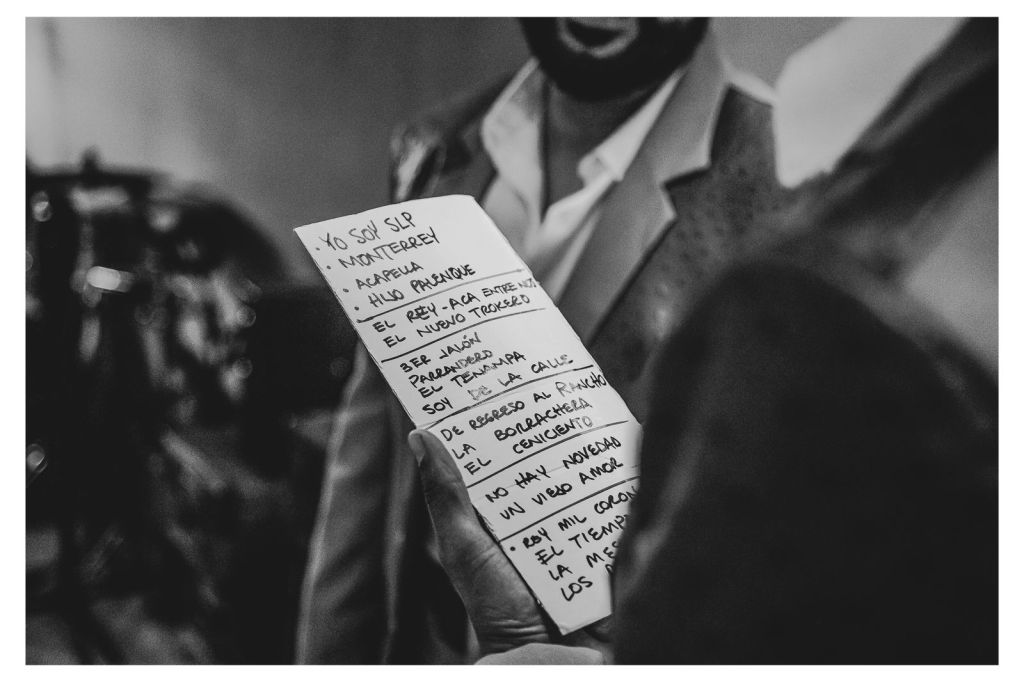 · YO SOY SLP
· MONTERREY
· ACAPELLA
· HIJO PALENQUE
EL REY - ACA ENTRE NOS
EL NUEVO TROKERO
3ER JALÓN
PARRANDERO
EL TENAMPA
SOY DE LA CALLE
DE REGRESO AL RANCHO
LA BORRACHERA
EL CENICIENTO
NO HAY NOVEDAD
UN VIEJO AMOR
· REY MIL CORON
EL TIEMP
LA MES
LOS